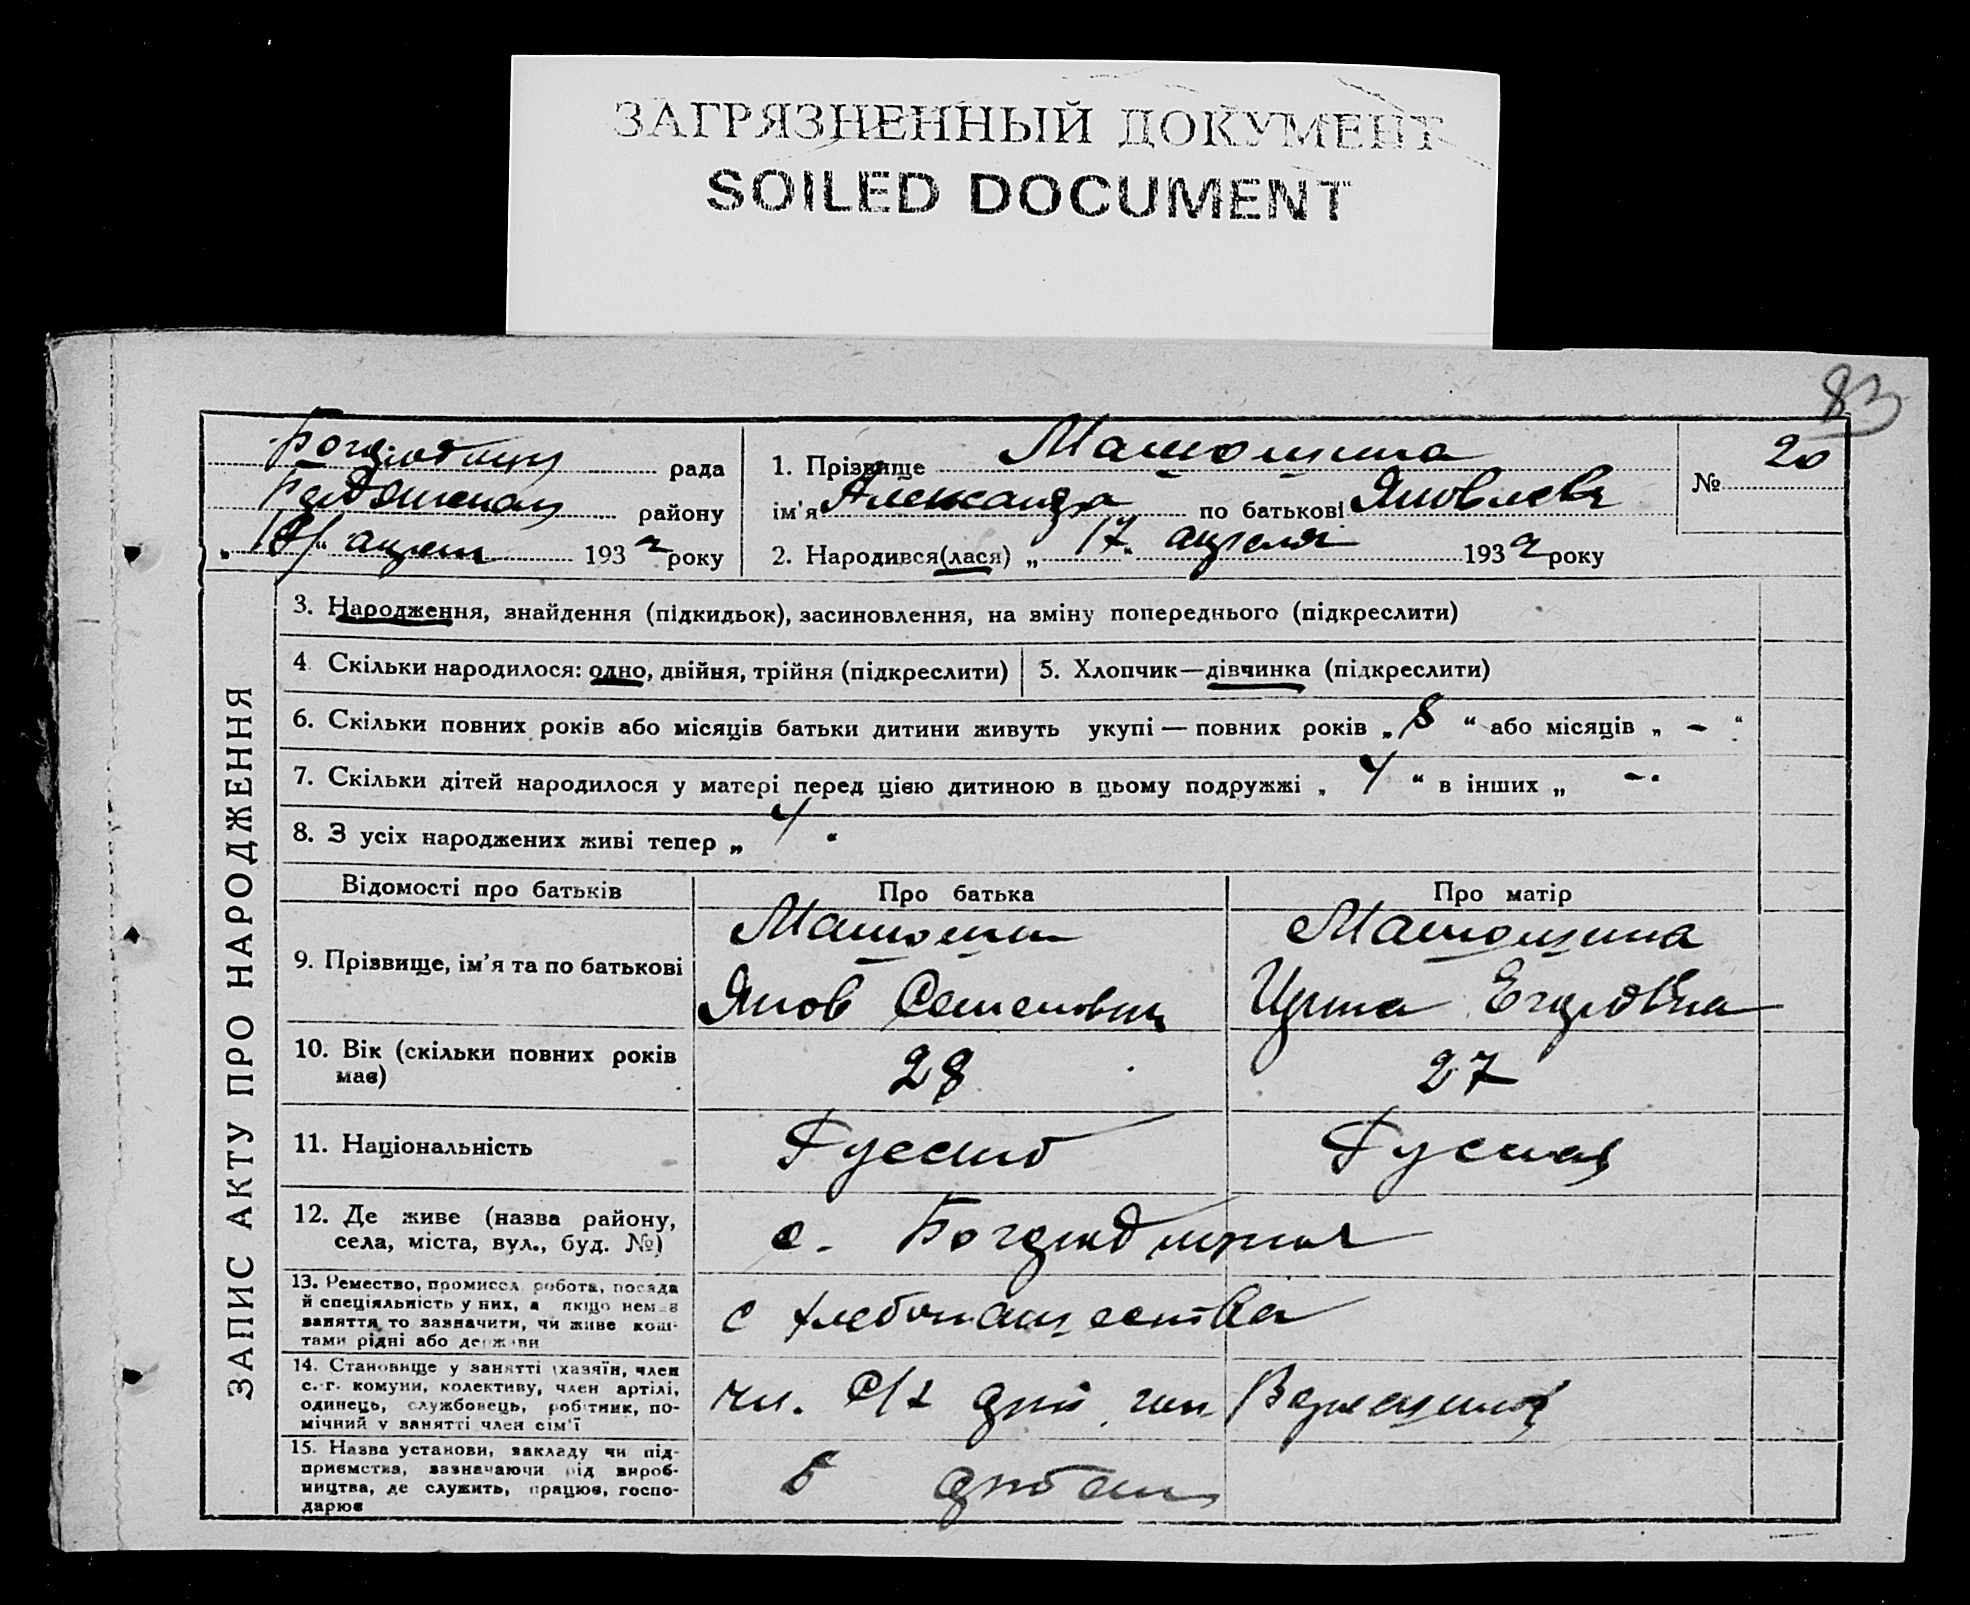 ЗАГРЯЗНЕННЫЙ ДОКУМЕНТ
SOILED DOCUMENT
83
рада
району
„18“ апреля 1932 року
1. Прізвище Машошина
ім'я Александра по батькові Яковлевн
2. Народився(лася) „17“ апреля 1932 року
№ 20
ЗАПИС АКТУ ПРО НАРОДЖЕННЯ
3. Народження, знайдення (підкидьок), засиновлення, на зміну попереднього (підкреслити)
4. Скільки народилося: одно, двійня, трійня (підкреслити)
5. Хлопчик—дівчинка (підкреслити)
6. Скільки повних років або місяців батьки дитини живуть укупі — повних років „8“ або місяців „ - “
7. Скільки дітей народилося у матері перед цією дитиною в цьому подружжі „4“ в інших „ -
8. З усіх народжених живі тепер „4“
Відомості про батьків
Про батька
Про матір
9. Прізвище, ім'я та по батькові
Машошин
Яков Семенович
Машошина
Ирина Егоровна
10. Вік (скільки повних років
має)
28
27
11. Національність
Русский
Русская
12. Де живе (назва району,
села, міста, вул., буд. №)
с.
13. Ремество, промисел робота, посада
й спеціяльність у них, а якщо немає
заняття то зазначити, чи живе кош-
тами рідні або держави
с хлебопашества
14. Становище у занятті (хазяїн, член
с.-г. комуни, колективу, член артілі,
одинець, службовець, робітник, по-
мічний у занятті член сім'ї
чл. с/х
15. Назва установи, закладу чи під-
приємства, зазначаючи рід вироб-
ництва, де служить, працює, госпо-
дарює
в